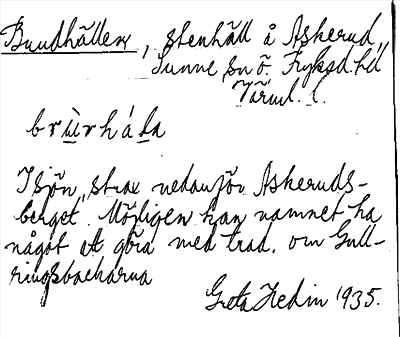 Brudhällen, stenhäll å Askerud,
Sunne sn ö. Fryksd. hd
Värml. l.
brùrhála
I sjön, strax nedanför Askeruds-
berget. Möjligen kan namnet ha
något att göra med trad. om Gull-
ringsbackarna
Greta Hedin 1935.